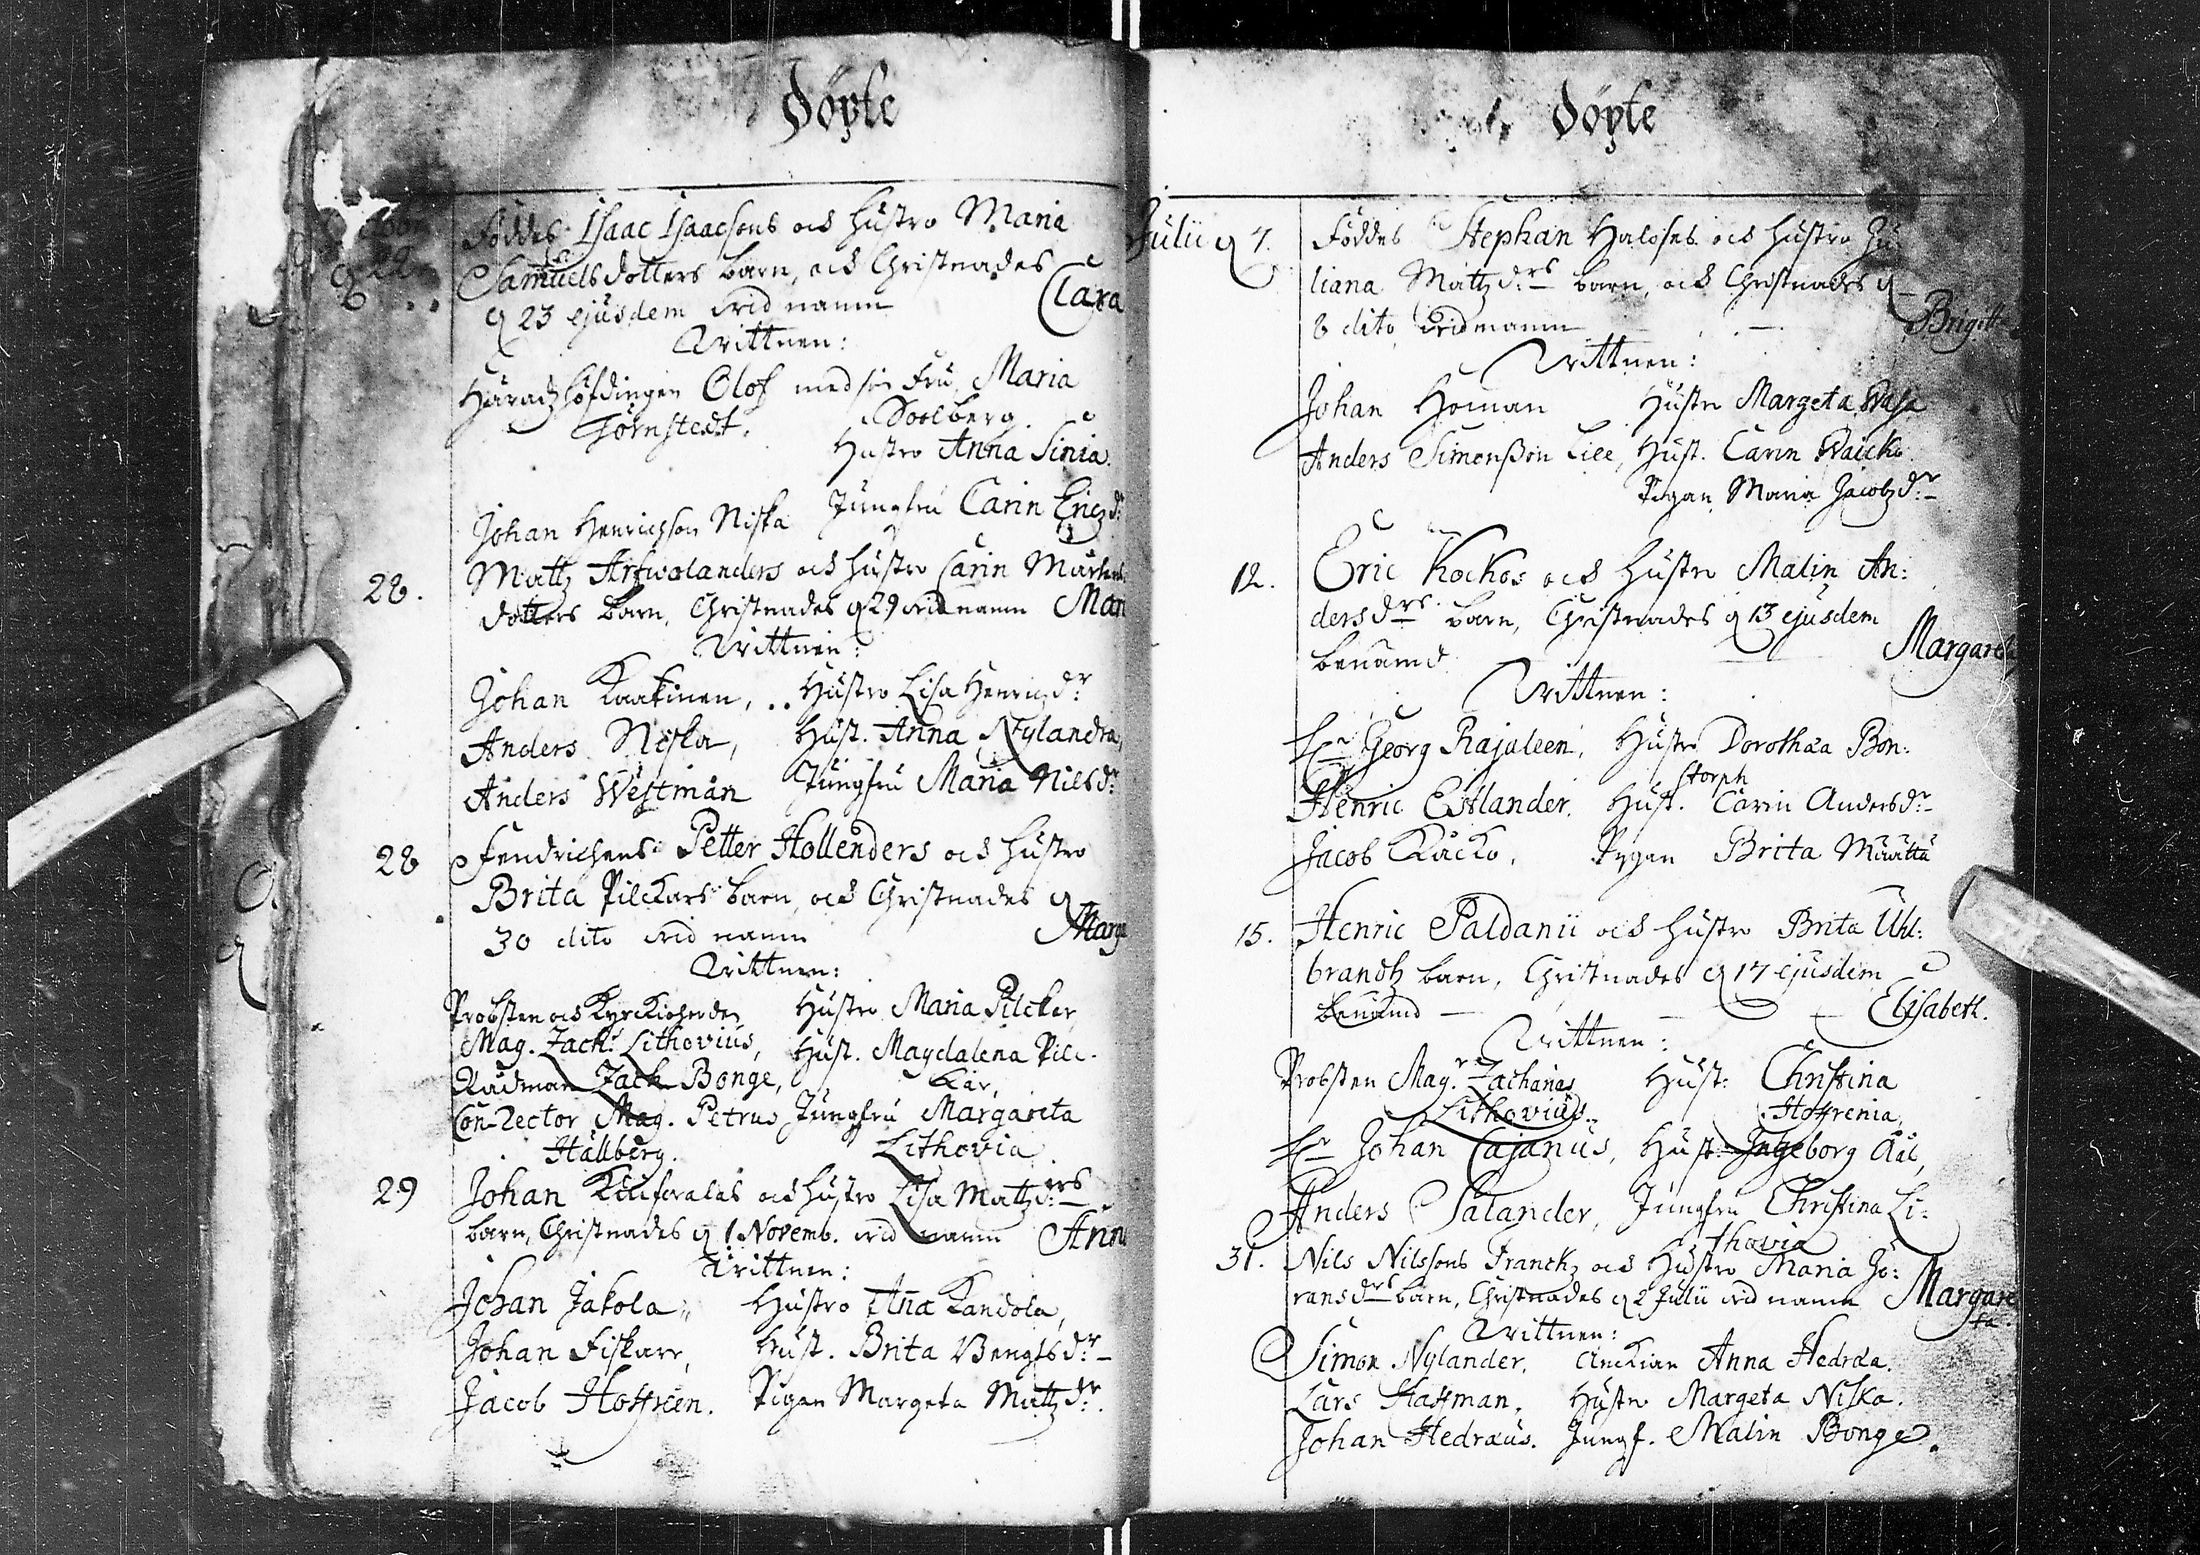 Döpte
Föddes Isaac Isaacsons och hustro Maria
Samuelsdotters barn, och Christnades
d 23 ejusdem vid namn Clara
Wittnen:
Häradzhöfdingen Olof med sin Fru Maria
Törnstedt. Soolberg.
Hustro Anna Sinia.
Johan Henrichson Niska Jungfru Carin Ericzdr
28. Mattz Arfwolanders och hustro Carin Mårtens
dotters barn, Christnades d 29 vid namn Man
Wittnen:
Johan Kaakinen, Hustro Lisa Henricdr
Anders Niska, Hust. Anna Nylandra,
Anders Westman Jungfru Maria Nielsdr
28 Fendrichens Petter Hollenders och hustro
Brita Pilckars barn, och Christnades d
30 dito vid namn Marge
Wittnen:
Probsten och Kyrckioherden Hustro Maria Pilckar
Mag. Zach: Lithovius, Hust. Magdalena Pilc-
Rådman Zach Bonge, kar,
Con-Rector Mag. Petrus Jungfru Margareta
Hällberg. Lithovia
29 Johan och hustro Lisa Mattzdrs
barn, Christnades d 1 Novemb. vid namn Ann
Wittnen:
Johan Jakola, Hustro Aña Kandola,
Johan Fiskare, Hust. Brita Bengtsdr
Jacob Hoffreen. Pigan Margeta Mattzdr.
Döpte
Julii d 7. Föddes Stephan Haloses och hustro Ju
liana Mattzdrs barn, och Christnades d
8 dito vid namn Brigitt
Wittnen:
Johan Homan Hustru Margeta Wasa
Anders Simonßon Lill, Hust. Carin Waicko
Pigan Maria Jacobzdr
12. Eric Kockos och Hustro Malin An:
dersdrs barn, Christnades d 13 ejusdem
benämd Margaret
Wittnen:
Hr Georg Rajaleen, Hustro Dorothæa Bon:
storph
Henric Estlander. Hust. Carin Andersdr
Jacob Kåcko, Pigan Brita Määttä
15. Henric Paldanii och hustro Brita Uhl:
brandz barn, Christnades d 17 ejusdem
benämd Elisabeth.
Wittnen:
Probsten Magr Zacharias Hust: Christina
Lithovius. Hoffrenia,
Hr Johan Cajanus, Hust: Ingeborg Ååå,
Anders Salander, Jungfru Christina Li:
thovia
31. Nils Nilssons Franckz och Hustro Maria Jö:
ransdrs barn, Christnades d 2 Julii vid namn Margare
ta.
Wittnen:
Simon Nylander. Änckian Anna Hedræa.
Lars Haffman, Hustru Margeta Niska.
Johan Hedræus. Jungf. Malin Bonge.